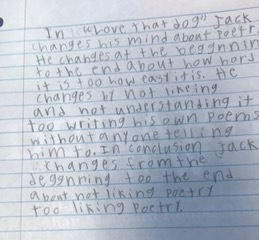 In "Love that dog" Jack
changes his mind about poetr
He changes at the beggnnin
to the end about how hard
it is too how easy it is. He
changes by not likeing
and not understanding it
too writing his own poems
without anyone telling
him to. In conclusion Jack
changes from the
deggnning too the end
about not liking poetry
too liking poetry.